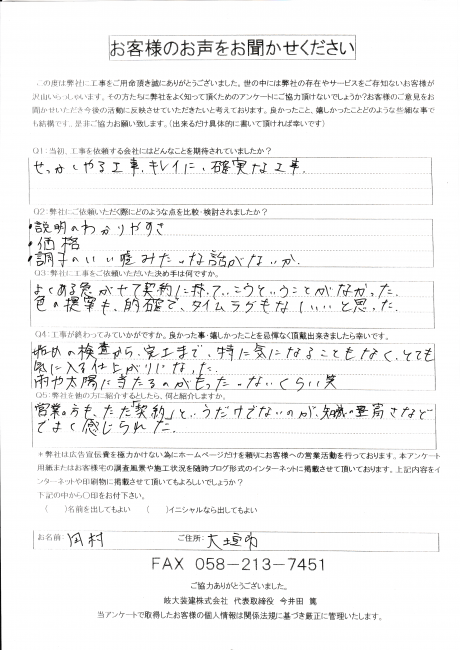 お客様のお声をお聞かせください
この度は弊社に工事をご用命頂き誠にありがとうございました。世の中には弊社の存在やサービスをご存知ないお客様が
沢山いらっしゃいます。その方たちに弊社をよく知って頂くためのアンケートにご協力頂けないでしょうか？お客様のご意見をお
聞かせいただき今後の活動に反映させていただきたいと考えております。良かったこと、嬉しかったことどのような些細な事で
も結構です。是非ご協力お願い致します。（出来るだけ具体的に書いて頂ければ幸いです）
Q1：当初、工事を依頼する会社にはどんなことを期待されていましたか？
せっかくやる工事、キレイに、確実な工事
Q2：弊社にご依頼いただく際にどのような点を比較・検討されましたか？
・説明のわかりやすさ
・価格
・調子のいい嘘みたいな話がないか、
Q3：弊社に工事をご依頼いただいた決め手は何ですか。
よくある急がせて契約に持っていこうということがなかった。
色の提案も、的確で、タイムラグもなくいいと思った。
Q4：工事が終わってみていかがですか。良かった事・嬉しかったことを忌憚なく頂戴出来ましたら幸いです。
始めの検査から、完工まで、特に気になることもなく、とても
気に入る仕上がりになった。
雨や太陽に当たるのがもったいないくらい笑
Q5：弊社を他の方に紹介するとしたら、何と紹介しますか。
営業の方も、ただ「契約」というだけでないのが、知識の豊富さなど
でよく感じられた。
＊弊社は広告宣伝費を極力かけない為にホームページだけを頼りにお客様への営業活動を行っております。本アンケート
用紙またはお客様宅の調査風景や施工状況を随時ブログ形式のインターネットに掲載させて頂いております。上記内容をイ
ンターネットや印刷物に掲載させて頂いてもよろしいでしょうか？
下記の中から〇印をお付下さい。
（　　）名前を出してもよい　（　　）イニシャルなら出してもよい
お名前：田村　ご住所：大垣市
FAX 058-213-7451
ご協力ありがとうございました。
岐大装建株式会社　代表取締役　今井田 篤
当アンケートで取得したお客様の個人情報は関係法規に基づき厳正に管理いたします。